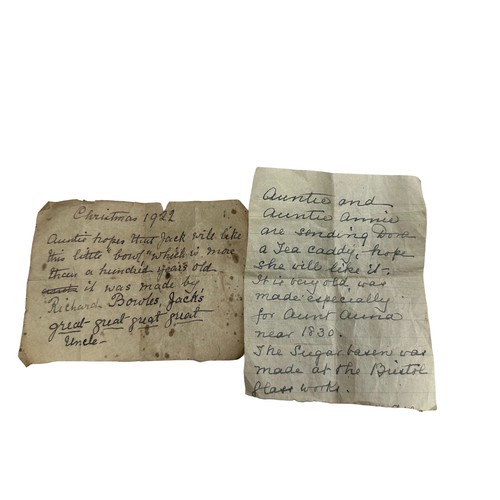 Christmas 1922
Auntie hopes that Jack will like
this little bowl, "which is more
than a hundred years old
it was made by
Richard Bowles, Jack's
great great great great
Uncle-
Auntie and
Auntie Annie
are sending Dora
a Tea caddy, hope
she will like it.
It is very old was
made especially
for Aunt Anna
near 1830.
The Sugar basin was
made at the Bristol
glass works.